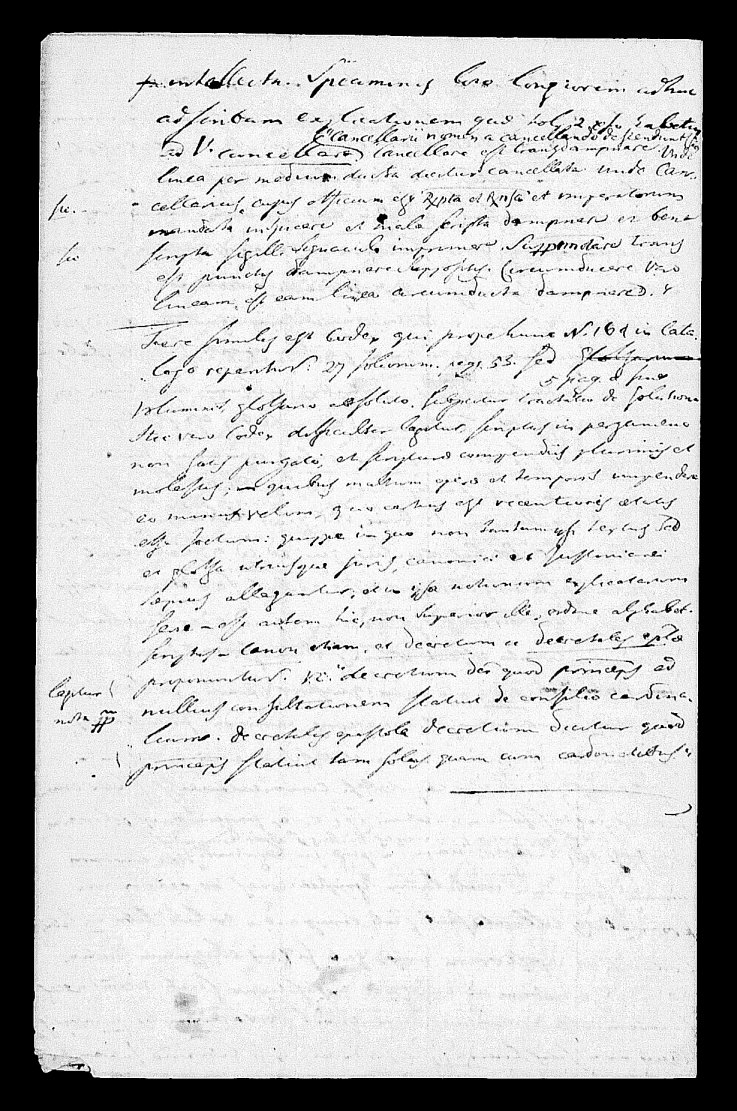 intellectu. Speciminis loco longiorem adhuc
adscribam explicationem quae fol. 2 habetur
ad V. cancellare Cancellarii nomen a cancellando descendunt
Cancellare est transdampnare. Unde
linea per medium ducta dicitur cancellata unde Can-
cellarius, cujus officium est scripta et rescripta et imperatorum
sic. mandata inspicere et male scripta dampnare et bene
sic scripta sigilli signaculo imprimere. Suppunctare Trans
est punctis dampnare suppositis. Circumducere vero
lineam, est eam linea circumducta dampnare.
Fere similis est Codex qui prope hunc N. 161 in Cata-
logo reperitur: 27 foliorum, pag. 53. sed
5 pag. a fine
voluminis, glossario absoluto, sequitur tractatus de solutione
Hic vero Codex difficulter legitur, scriptus in pergameno
non satis purgato, et scripturae compendiis plurimis et
molestis; in quibus multum operae et temporis impendere
eo minus velim, quo certius est recentioris aetatis
esse foetum: quippe in quo non tantum ipse textus sed
et glossa utriusque juris, canonici et Justinianei
saepius allegantur, et in ipsa notionum explicatarum
serie - est autem hic, non superior ille, ordine alphabet.
scriptus - Canon etiam, et decretum ac decretales epistolae
proponuntur. v.c. "decretum dei quod princeps ad
legitur nullius consultationem statuit de consilio cardina-
nota lium. decretalis epistola decretum dicitur quod
princeps statuit tam solus quam cum cardinalibus"